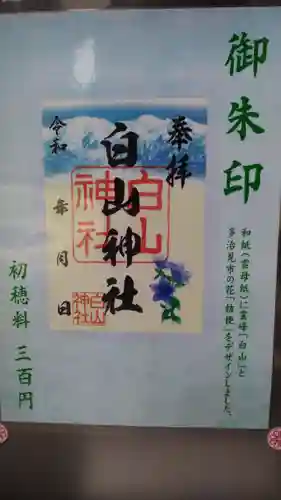 御朱印
和紙(雲母紙)に霊峰「白山」と
多治見市の花「桔梗」をデザインしました。
奉拝
白山神社
白山
神社
令和 年 月 日
白山
神社
初穂料 三百円